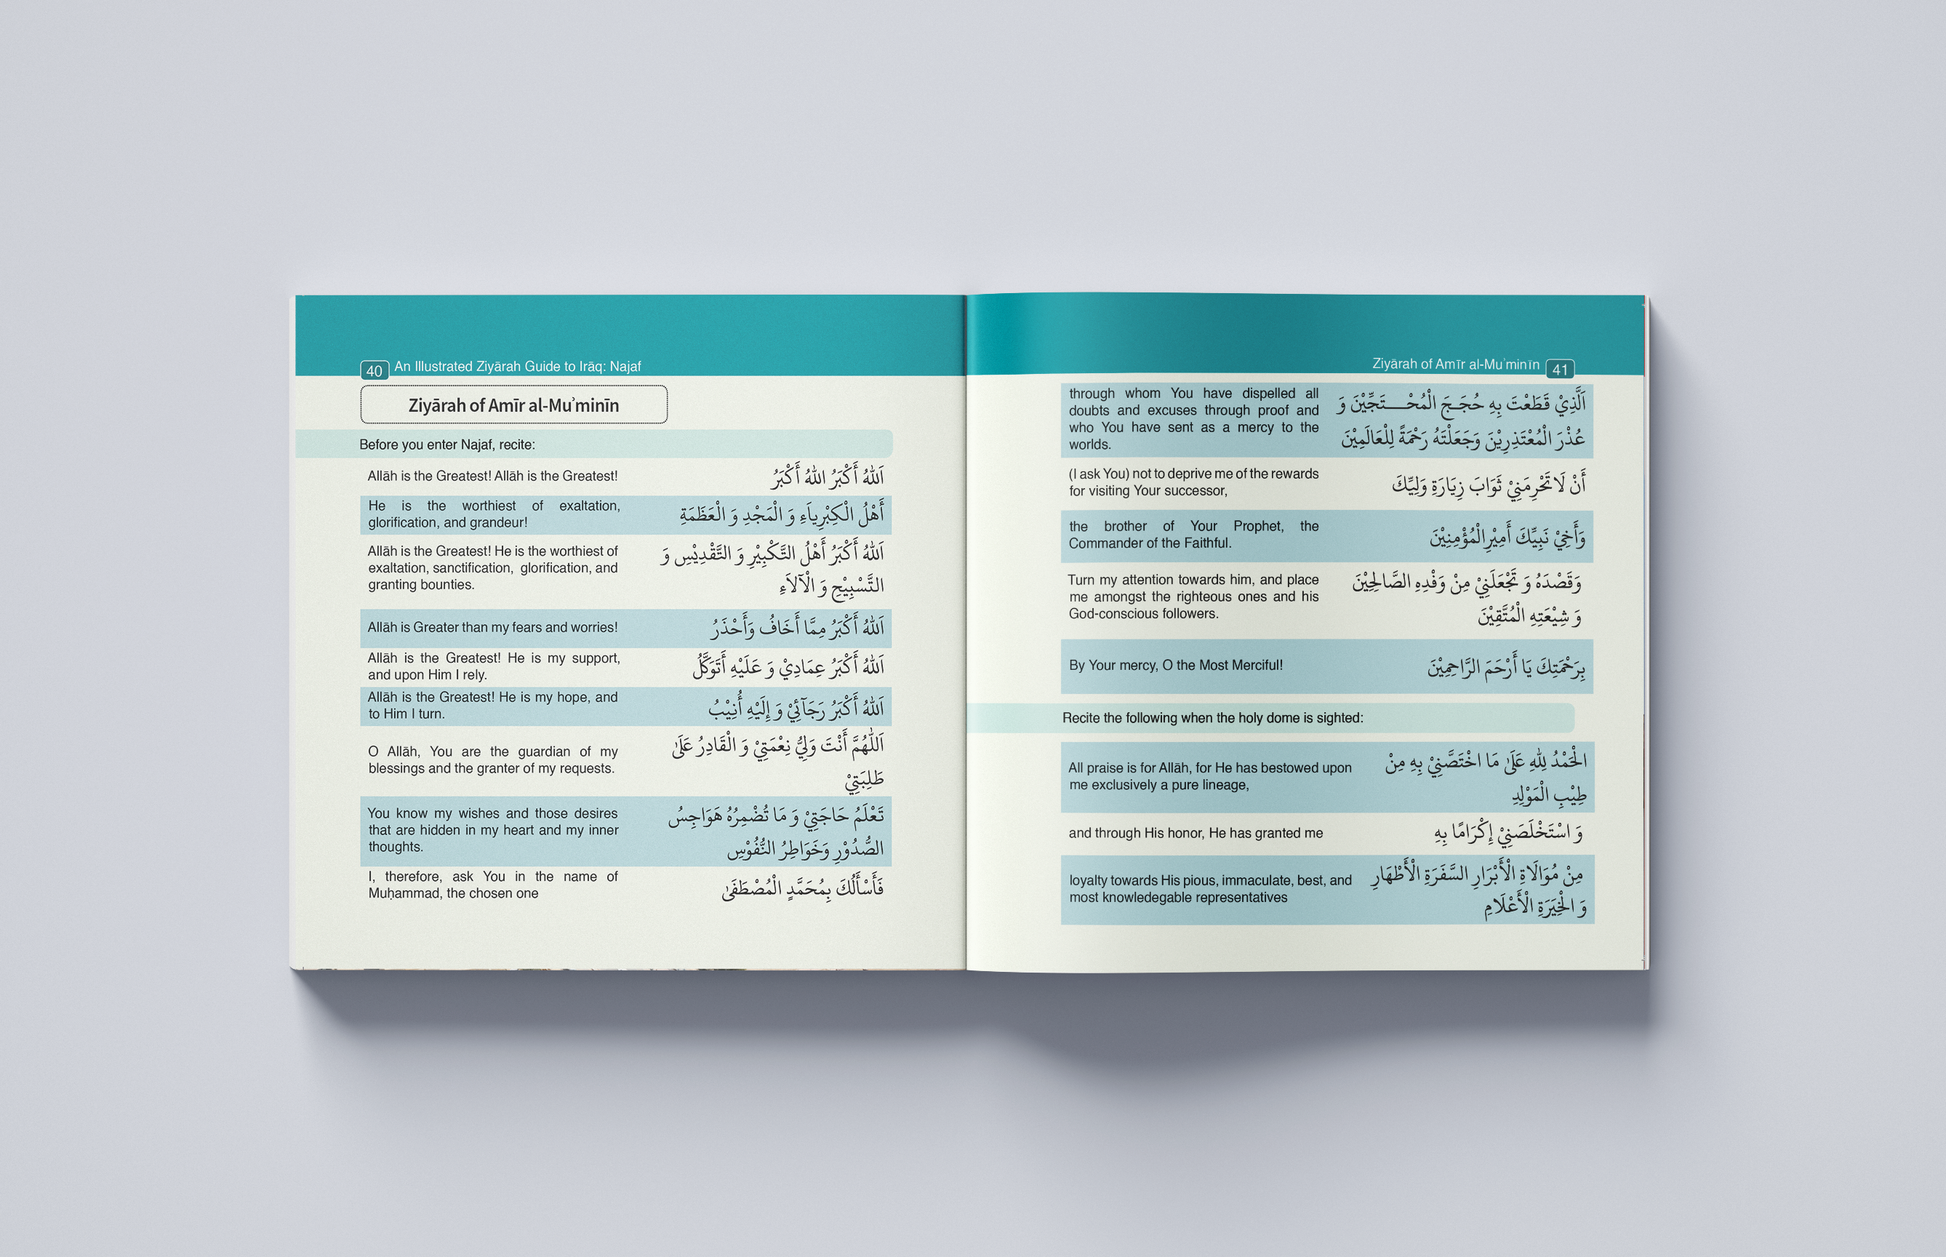 40 An Illustrated Ziyārah Guide to Irāq: Najaf
Ziyārah of Amīr al-Muʾminīn
Before you enter Najaf, recite:
Allāh is the Greatest! Allāh is the Greatest!
اَللهُ أَكْبَرُ اللهُ أَكْبَرُ
He is the worthiest of exaltation,
glorification, and grandeur!
أَهْلُ الْكِبْرِيَاءِ وَ الْمَجْدِ وَ الْعَظَمَةِ
Allāh is the Greatest! He is the worthiest of
exaltation, sanctification, glorification, and
granting bounties.
اَللهُ أَكْبَرُ أَهْلُ التَّكْبِيْرِ وَ التَّقْدِيْسِ وَ
التَّسْبِيْحِ وَ الْآلَاءِ
Allāh is Greater than my fears and worries!
اَللهُ أَكْبَرُ مِمَّا أَخَافُ وَأَحْذَرُ
Allāh is the Greatest! He is my support,
and upon Him I rely.
اَللهُ أَكْبَرُ عِمَادِيْ وَ عَلَيْهِ أَتَوَكَّلُ
Allāh is the Greatest! He is my hope, and
to Him I turn.
اَللهُ أَكْبَرُ رَجَآئِيْ وَ إِلَيْهِ أُنِيْبُ
O Allāh, You are the guardian of my
blessings and the granter of my requests.
اَللّٰهُمَّ أَنْتَ وَلِيُّ نِعْمَتِيْ وَ الْقَادِرُ عَلَىٰ
طَلِبَتِيْ
You know my wishes and those desires
that are hidden in my heart and my inner
thoughts.
تَعْلَمُ حَاجَتِيْ وَ مَا تُضْمِرُهُ هَوَاجِسُ
الصُّدُوْرِ وَخَوَاطِرُ النُّفُوْسِ
I, therefore, ask You in the name of
Muḥammad, the chosen one
فَأَسْأَلُكَ بِمُحَمَّدٍ الْمُصْطَفَىٰ
Ziyārah of Amīr al-Muʾminīn 41
through whom You have dispelled all
doubts and excuses through proof and
who You have sent as a mercy to the
worlds.
اَلَّذِيْ قَطَعْتَ بِهِ حُجَجَ الْمُحْتَجِّيْنَ وَ
عُذْرَ الْمُعْتَذِرِيْنَ وَجَعَلْتَهُ رَحْمَةً لِلْعَالَمِيْنَ
(I ask You) not to deprive me of the rewards
for visiting Your successor,
أَنْ لَا تَحْرِمَنِيْ ثَوَابَ زِيَارَةِ وَلِيِّكَ
the brother of Your Prophet, the
Commander of the Faithful.
وَأَخِيْ نَبِيِّكَ أَمِيْرِالْمُؤْمِنِيْنَ
Turn my attention towards him, and place
me amongst the righteous ones and his
God-conscious followers.
وَقَصْدَهُ وَ تَجْعَلَنِيْ مِنْ وَفْدِهِ الصَّالِحِيْنَ
وَ شِيْعَتِهِ الْمُتَّقِيْنَ
By Your mercy, O the Most Merciful!
بِرَحْمَتِكَ يَا أَرْحَمَ الرَّاحِمِيْنَ
Recite the following when the holy dome is sighted:
All praise is for Allāh, for He has bestowed upon
me exclusively a pure lineage,
الْحَمْدُ لِلّٰهِ عَلَىٰ مَا اخْتَصَّنِيْ بِهِ مِنْ
طِيْبِ الْمَوْلِدِ
and through His honor, He has granted me
وَ اسْتَخْلَصَنِيْ إِكْرَامًا بِهِ
loyalty towards His pious, immaculate, best, and
most knowledegable representatives
مِنْ مُوَالَاةِ الْأَبْرَارِ السَّفَرَةِ الْأَطْهَارِ
وَ الْخِيَرَةِ الْأَعْلَامِ